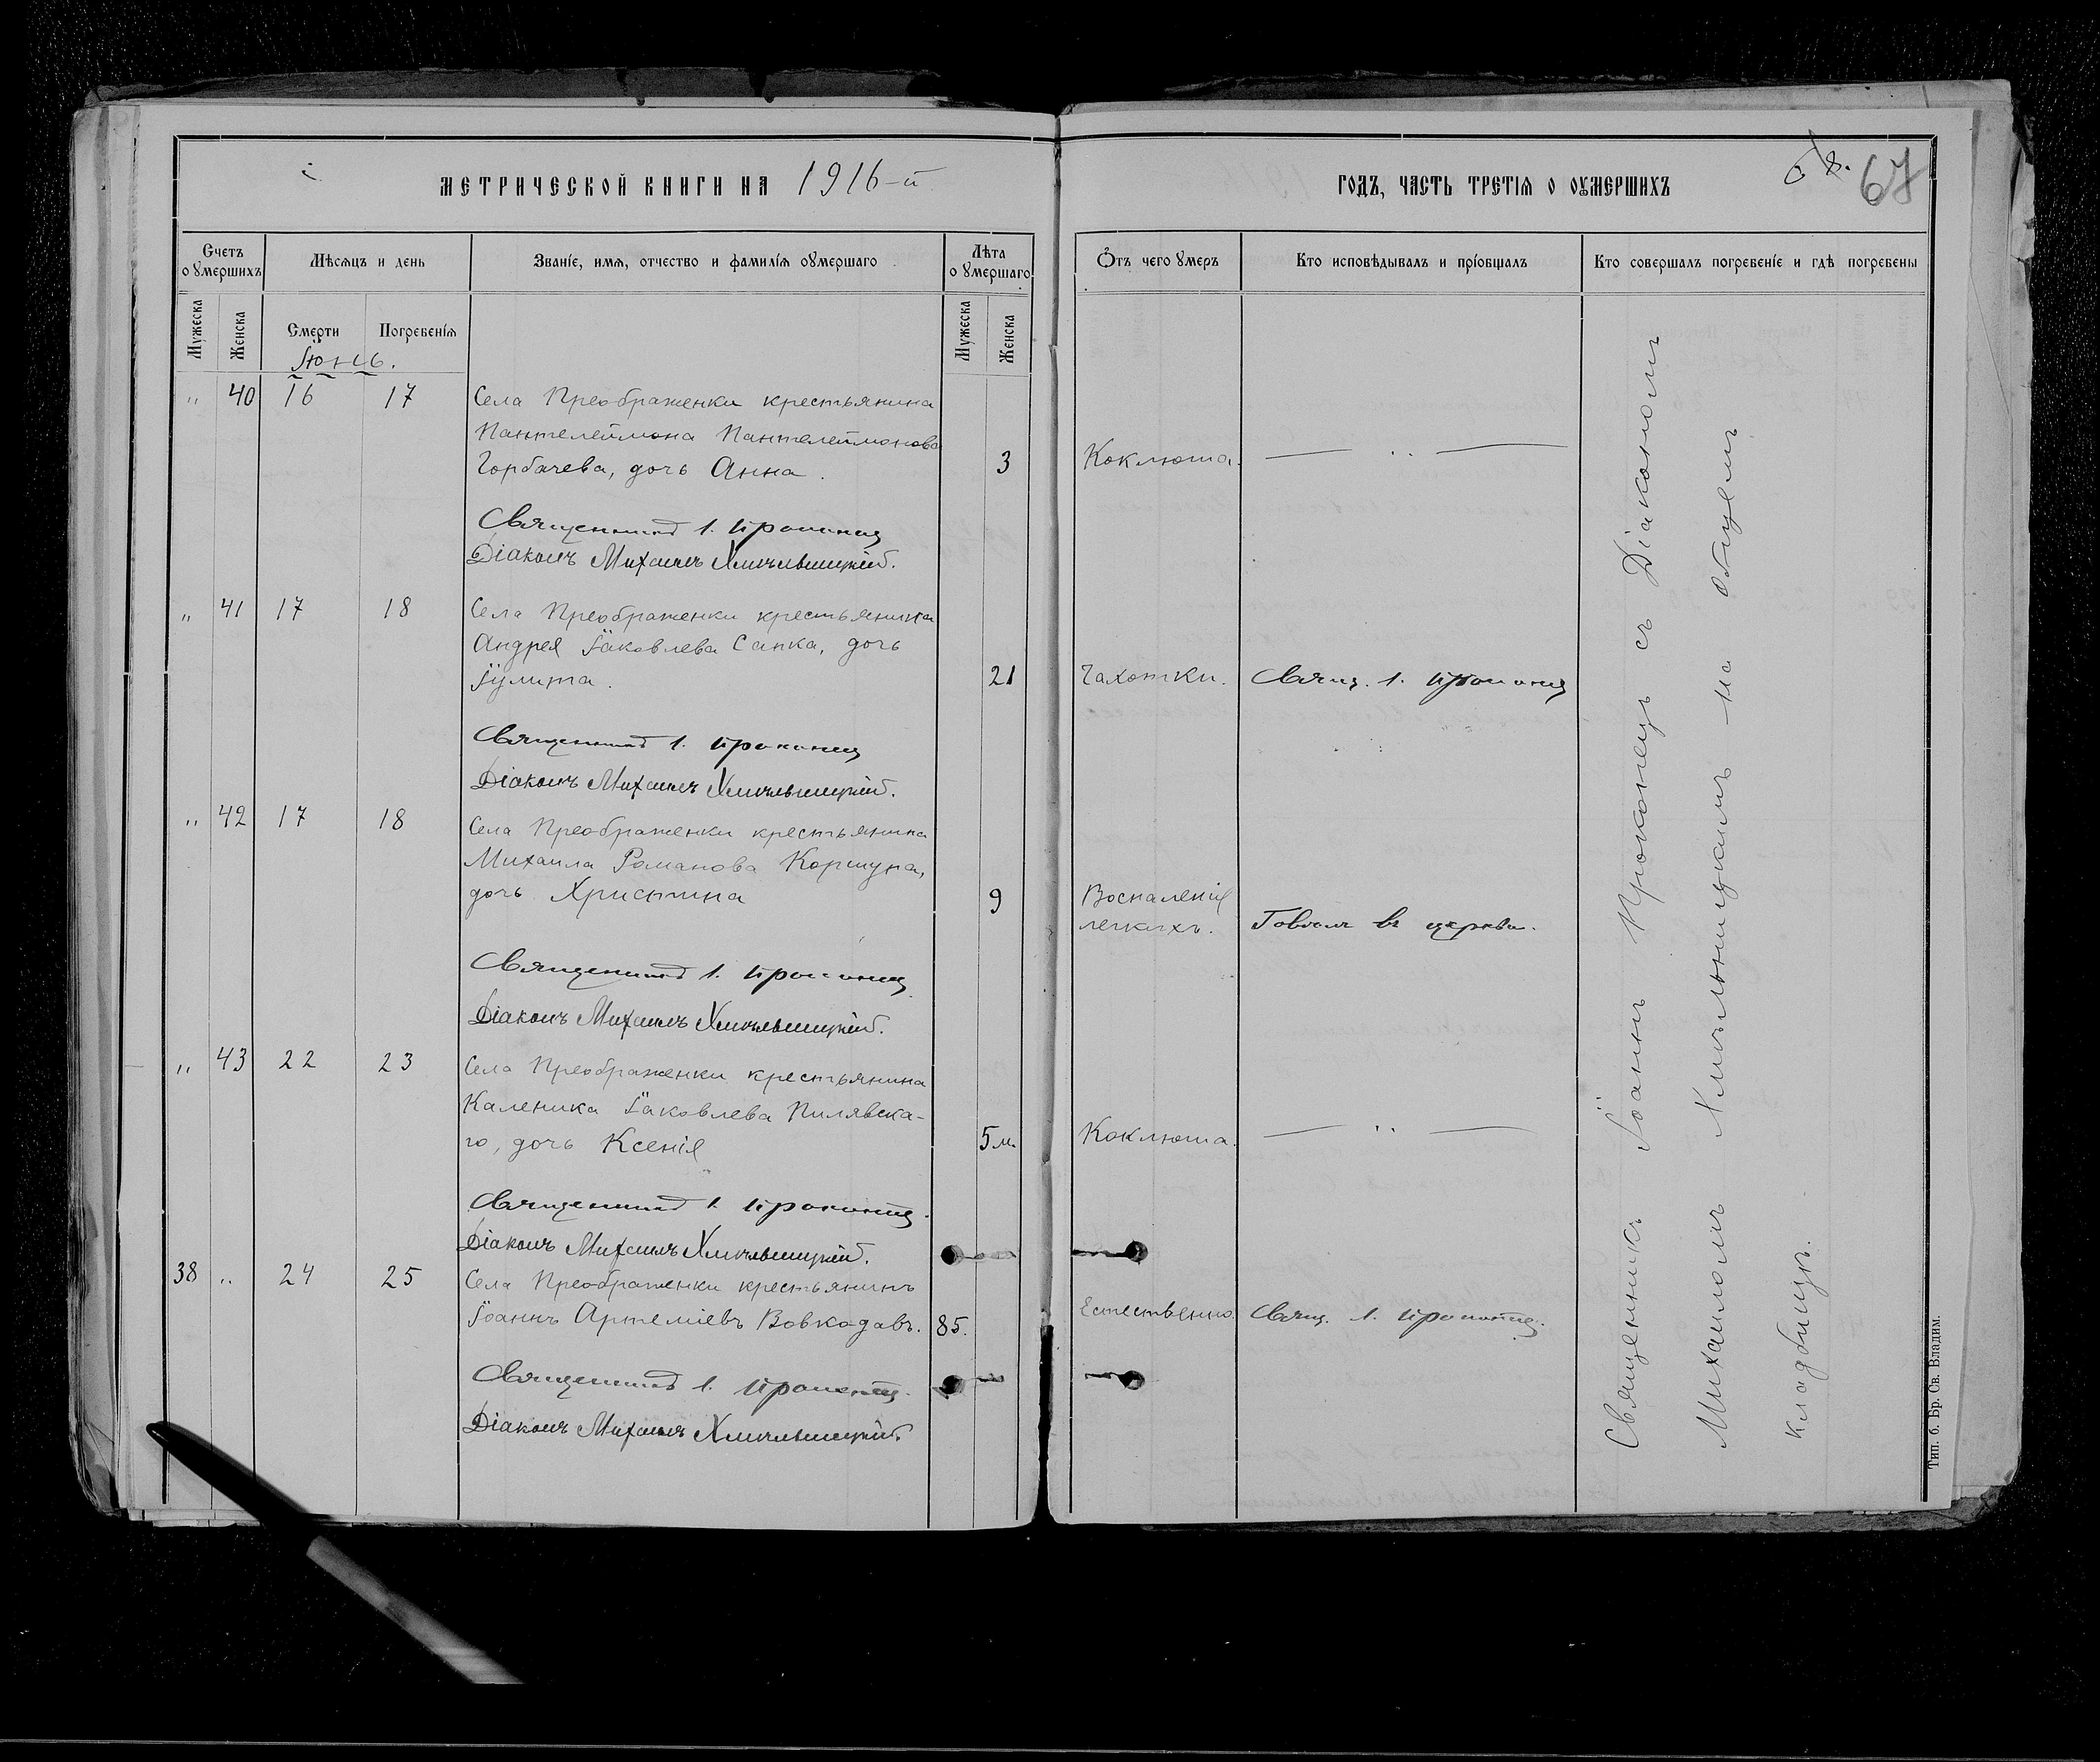 МЕТРИЧЕСКОЙ КНИГИ НА 1916-й
ГОДЪ, ЧАСТЬ ТРЕТІЯ О ОУМЕРШИХЪ
68. 67
Счетъ оумершихъ
Мѣсяцъ и день
Званіе, имя, отчество и фамилія оумершаго
Лѣта оумершаго
Отъ чего умеръ
Кто исповѣдывалъ и пріобщалъ
Кто совершалъ погребеніе и гдѣ погребены
Мужеска
Женска
Смерти
Погребенія
Мужеска
Женска
Іюнь.
" 40 16 17 Села Преображенки крестьянина
Пантелеймона Пантелеймонова
Горбачева, дочь Анна. 3 Коклюша. — " —
Священникъ І. Проконец
Діаконъ Михаилъ Хмильницкій.
" 41 17 18 Села Преображенки крестьянина
Андрея Іаковлева Сапка, дочь
Іулита. 21 Чахотки. Свящ. І. Проконец
Священникъ І. Проконец
Діаконъ Михаилъ Хмильницкій.
" 42 17 18 Села Преображенки крестьянина
Михаила Романова Коршуна,
дочь Христина 9 Воспаленія
легкихъ. Говела в церкви.
Священникъ І. Проконец
Діаконъ Михаилъ Хмильницкій.
" 43 22 23 Села Преображенки крестьянина
Каленика Іаковлева Пилявска-
го, дочь Ксенія 5 м. Коклюша. — " —
Священникъ І. Проконец.
Діаконъ Михаилъ Хмильницкій.
38 " 24 25 Села Преображенки крестьянинъ
Іоаннъ Артеміевъ Вовкодавъ. 85. Естественно. Свящ. І. Проконец.
Священникъ І. Проконец.
Діаконъ Михаилъ Хмильницкій.
Священникъ Іоаннъ Проконецъ съ Діакономъ
Михаиломъ Хмильницкимъ на общемъ
кладбищѣ.
Тип. б. Бр. Св. Владим.